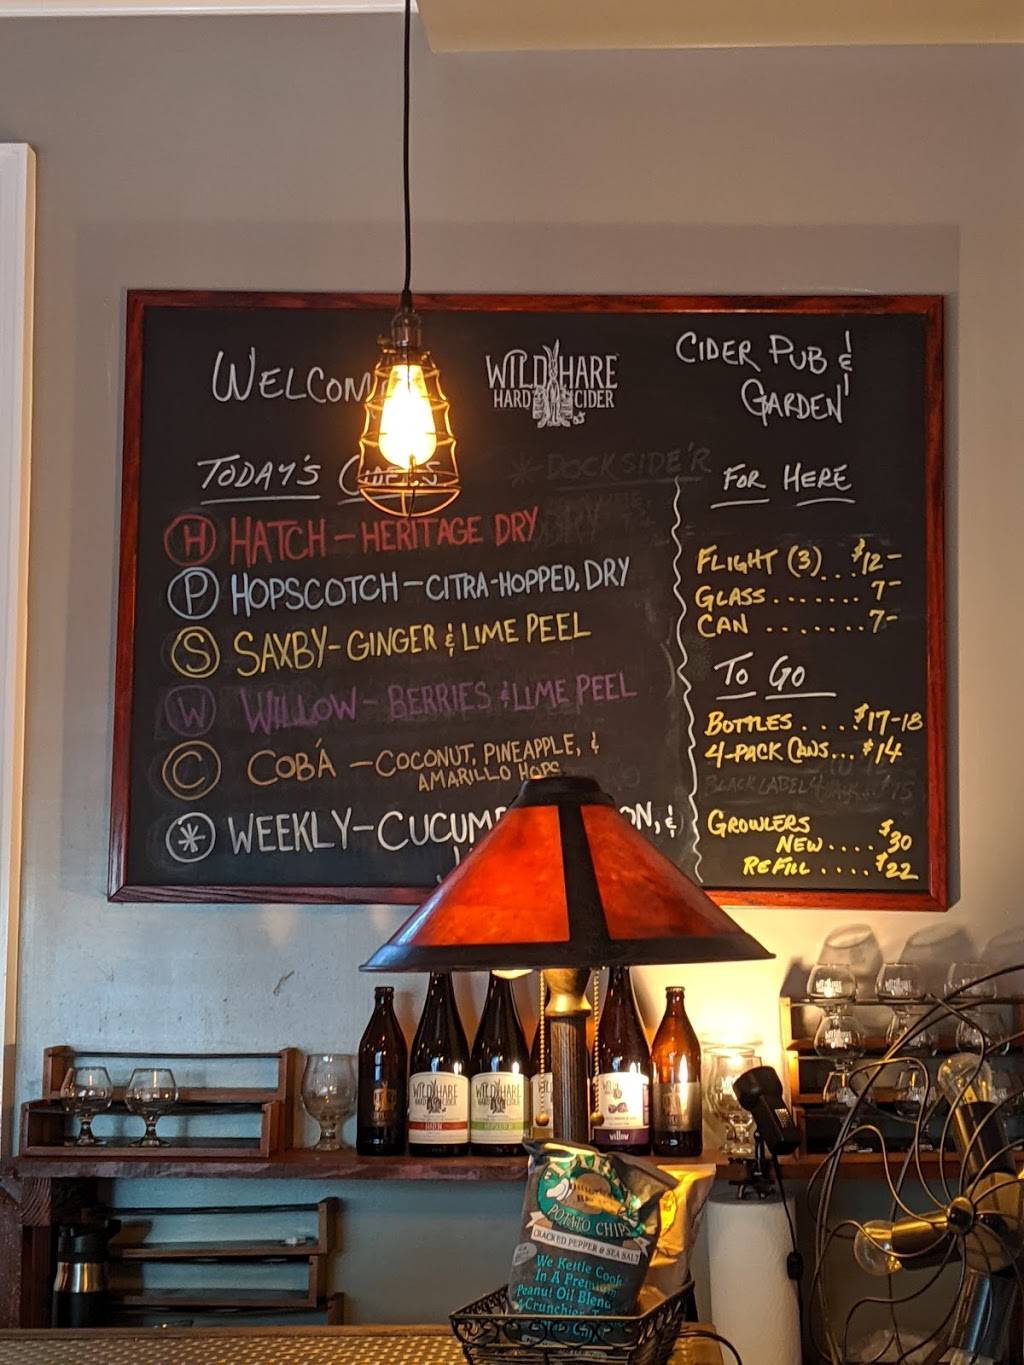 WELCOM
WILD HARE
HARD CIDER
CIDER PUB &
GARDEN
TODAY'S CIDERS
DOCKSIDE'R
FOR HERE
H HATCH - HERITAGE DRY
P HOPSCOTCH - CITRA-HOPPED, DRY
S SAXBY - GINGER & LIME PEEL
W WILLOW - BERRIES & LIME PEEL
C COBÁ - COCONUT, PINEAPPLE, &
AMARILLO HOPS
* WEEKLY - CUCUM ON, &
FLIGHT (3)...$12-
GLASS.......7-
CAN........7-
TO GO
BOTTLES...$17-18
4-PACK CANS...$14
BLACK LABEL
GROWLERS
NEW....$30
REFILL....$22
WILD HARE
HARD CIDER
HATCH
WILD HARE
HARD CIDER
willow
POTATO CHIPS
CRACKED PEPPER & SEA SALT
We Kettle Cook
In A Premium
Peanut Oil Blend
Crunchier